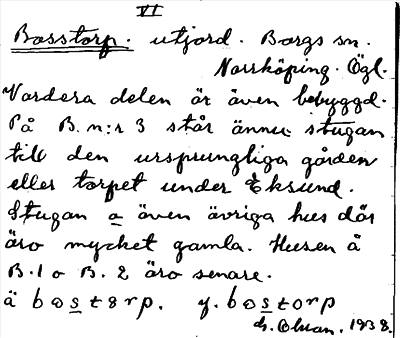 VI
Bosstorp. utjord. Borgs sn.
Norrköping. Ögl.
Vardera delen är även bebyggd.
På B. n:r 3 står ännu stugan
till den ursprungliga gården
eller torpet under Eksund.
Stugan o även övriga hus där
äro mycket gamla. Husen å
B. 1 o B. 2 äro senare.
ä bostorp. y. bostorp
1938.